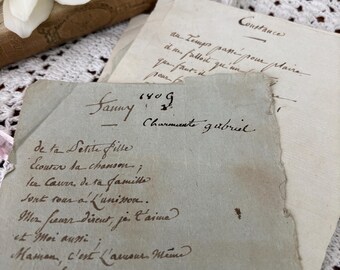 Constance
au temps passé pour plaire
il en falloit
pour
Fanny
1809
Charmante gabriel
de la Petite fille
Ecouter la chanson ;
les Cœurs de la famille
Sont tous à L'unisson.
Mon Cœur disent, je t'aime
et Moi aussi ;
Maman, c'est L'amour Même